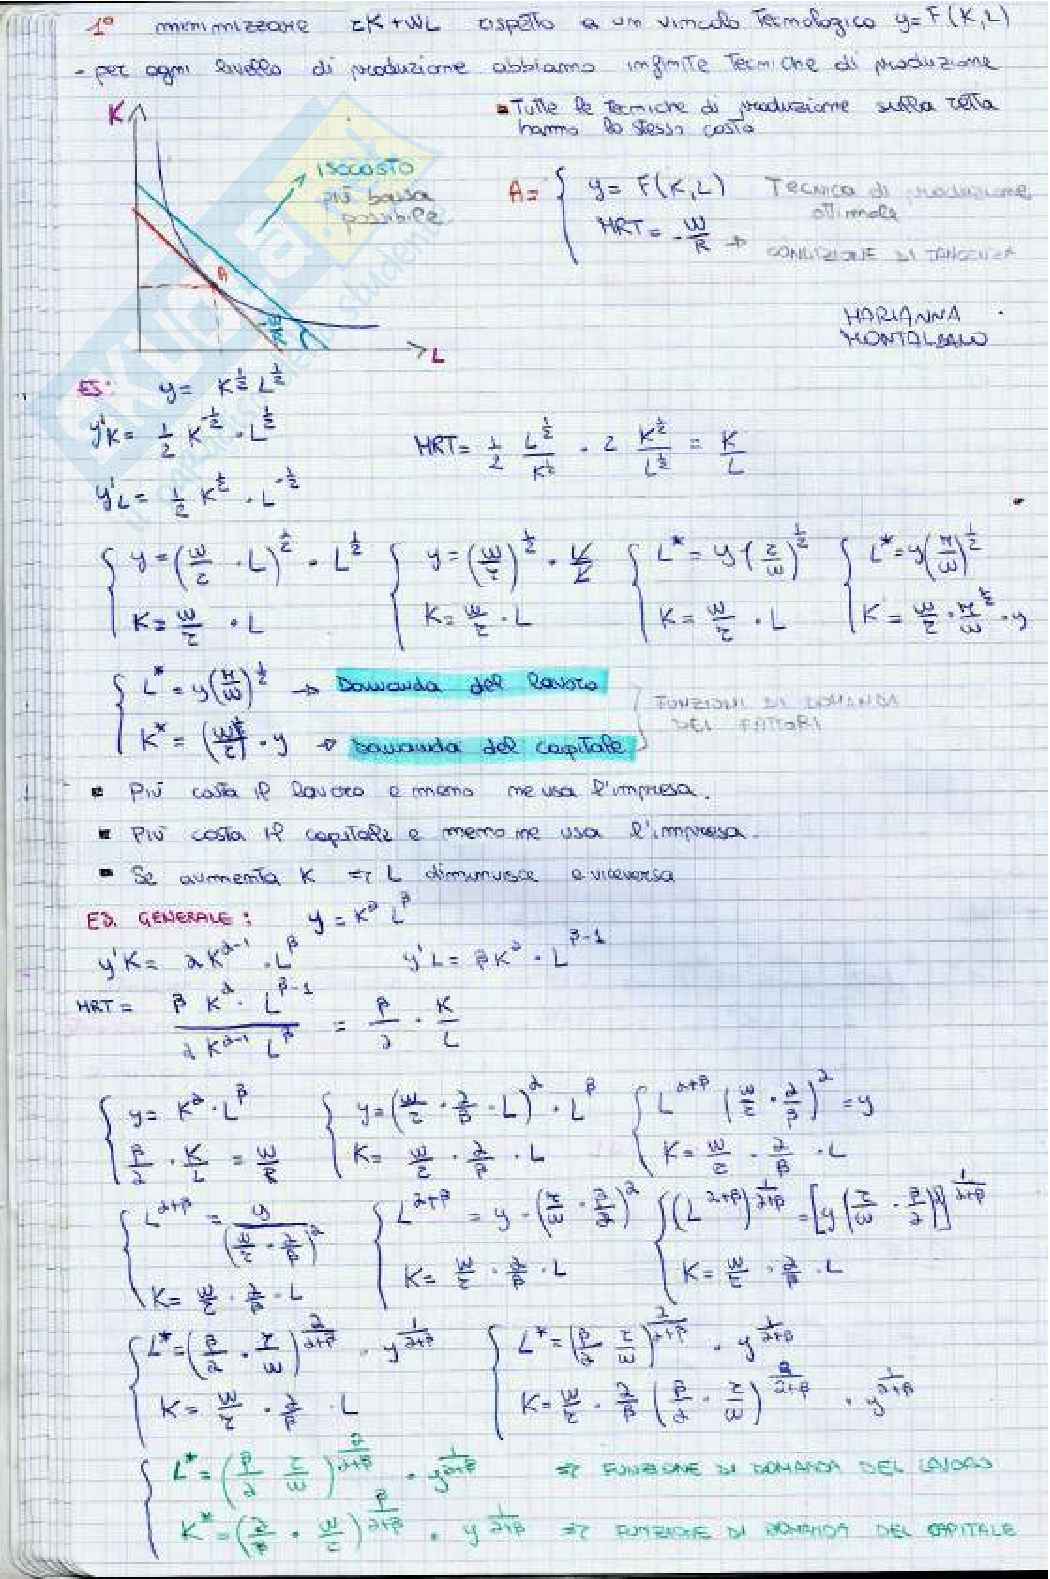 1° minimizzare rK + WL rispetto a un vincolo Tecnologico y = F(K,L)
- per ogni livello di produzione abbiamo infinite Tecniche di produzione
▪ Tutte le tecniche di produzione sulla retta
hanno lo stesso costo
K
ISOCOSTO
più bassa
possibile
A
L
A = { y = F(K,L) Tecnica di produzione
ottimale
MRT = - W/R → CONDIZIONE DI TANGENZA
MARIANNA
MONTALBANO
ES: y = K^½ L^½
y'K = 1/2 K^-½ · L^½
MRT = 1/2 L^½/K^½ · 2 K^½/L^½ = K/L
y'L = 1/2 K^½ · L^-½
{ y = (w/r · L)^½ · L^½ { y = (w/r)^½ · L { L* = y · (r/w)^½ { L* = y (r/w)^½
K = w/r · L K = w/r · L K = w/r · L K = w/r · r/w^½ · y
{ L* = y (r/w)^½ → Domanda del lavoro
K* = (w/r)^½ · y → Domanda del capitale
FUNZIONI DI DOMANDA
DEI FATTORI
▪ Più costa il lavoro e meno ne usa l'impresa.
▪ Più costa il capitale e meno ne usa l'impresa.
▪ Se aumenta K => L diminuisce e viceversa
ES. GENERALE: y = K^α L^β
y'K = αK^α-1 · L^β y'L = βK^α · L^β-1
MRT = β K^α · L^β-1 / α K^α-1 L^β = β/α · K/L
{ y = K^α · L^β { y = (w/r · α/β · L)^α · L^β { L^α+β (w/r · α/β)^α = y
β/α · K/L = w/R K = w/r · α/β · L K = w/r · α/β · L
{ L^α+β = y / (w/r · α/β)^α { L^α+β = y · (r/w · β/α)^α { (L^α+β)^1/α+β = [y (r/w · β/α)]^1/α+β
K = w/r · α/β · L K = w/r · α/β · L K = w/r · α/β · L
{ L* = (β/α · r/w)^α/α+β · y^1/α+β { L* = (β/α r/w)^α/α+β · y^1/α+β
K = w/r · α/β · L K = w/r · α/β (β/α · r/w)^α/α+β · y^1/α+β
{ L* = (β/α r/w)^α/α+β · y^1/α+β => FUNZIONE DI DOMANDA DEL LAVORO
K* = (α/β · w/r)^β/α+β · y^1/α+β => FUNZIONE DI DOMANDA DEL CAPITALE